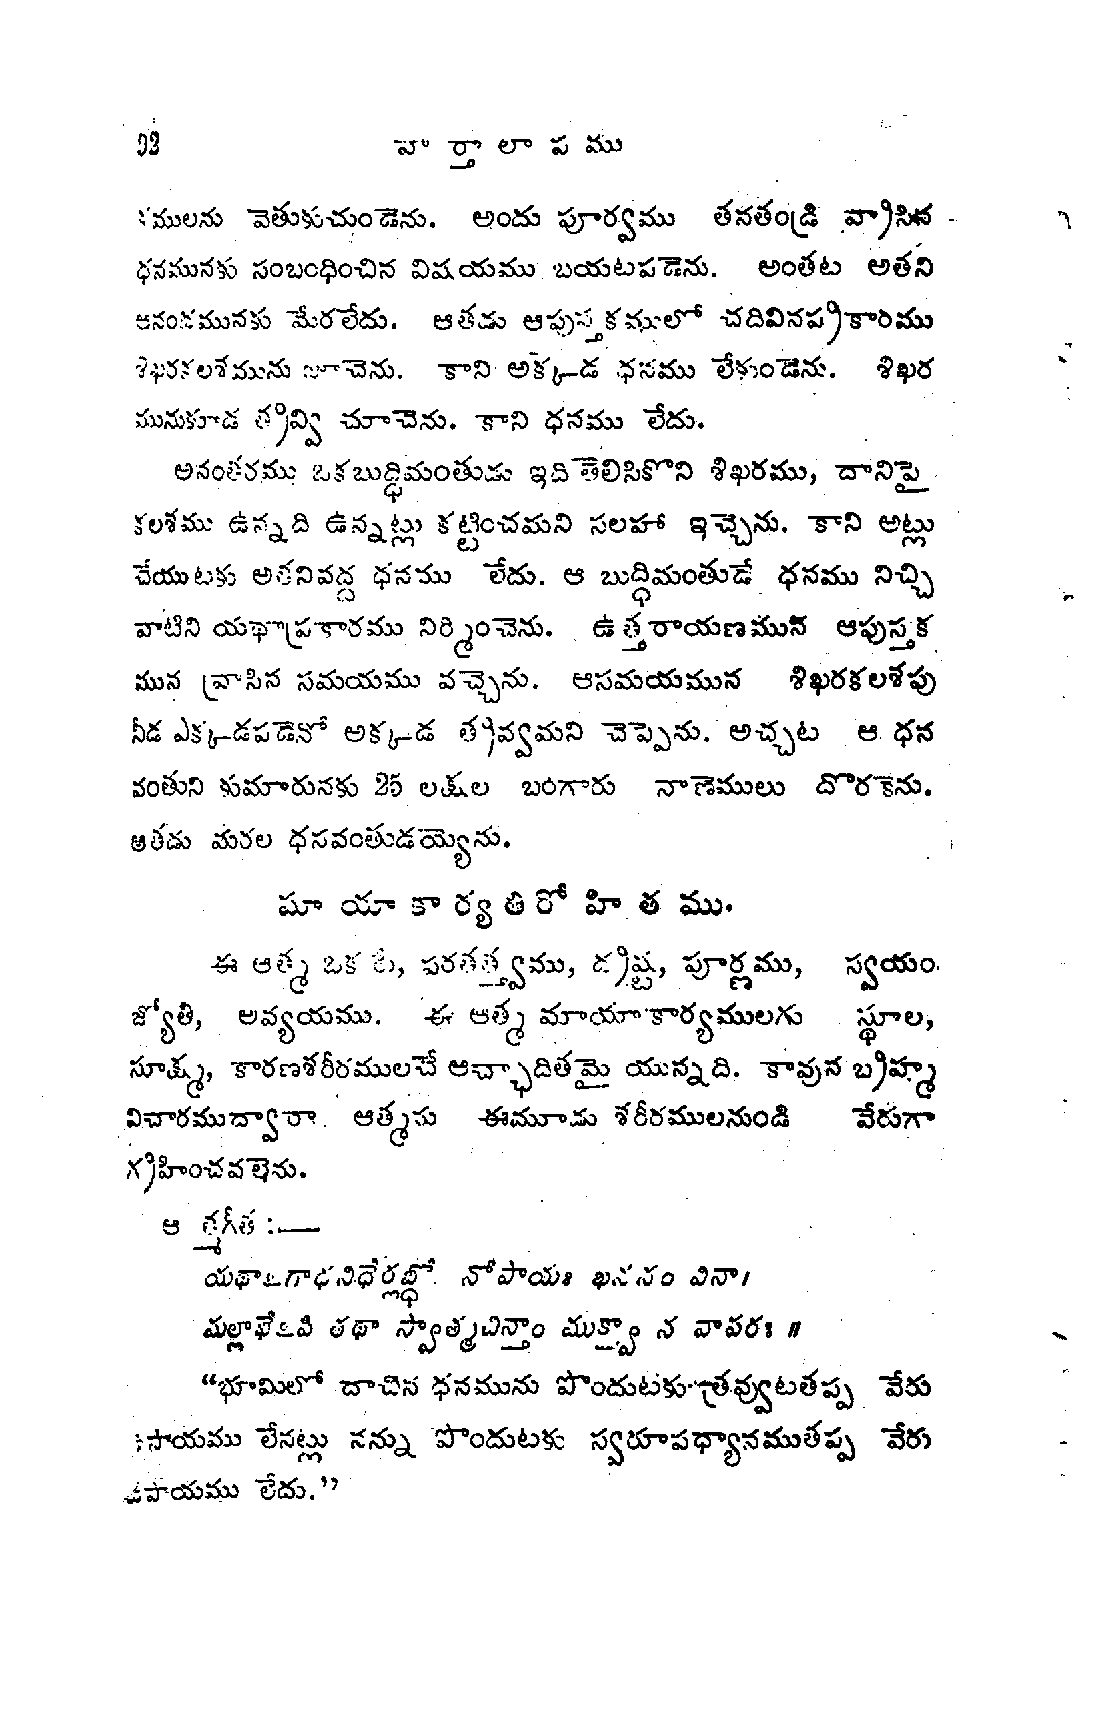 వార్తాలాపము
ములను వెతుకుచుండెను. అందు పూర్వము తనతండ్రి వ్రాసిన
ధనమునకు సంబంధించిన విషయము బయటపడెను. అంతట అతని
ఆనందమునకు మేరలేదు. ఆతడు ఆపుస్తకములో చదివినప్రకారము
శిఖరకలశమును జూచెను. కాని అక్కడ ధనము లేకుండెను. శిఖర
మునుకూడ త్రవ్వి చూచెను. కాని ధనము లేదు.
అనంతరము ఒకబుద్ధిమంతుడు ఇది తెలిసికొని శిఖరము, దానిపై
కలశము ఉన్నది ఉన్నట్లు కట్టించమని సలహా ఇచ్చెను. కాని అట్లు
చేయుటకు అతనివద్ద ధనము లేదు. ఆ బుద్ధిమంతుడే ధనము నిచ్చి
వాటిని యథాప్రకారము నిర్మించెను. ఉత్తరాయణమున ఆపుస్తక
మున వ్రాసిన సమయము వచ్చెను. ఆసమయమున శిఖరకలశపు
నీడ ఎక్కడపడెనో అక్కడ త్రవ్వమని చెప్పెను. అచ్చట ఆ ధన
వంతుని కుమారునకు 25 లక్షల బంగారు నాణెములు దొరకెను.
ఆతడు మరల ధనవంతుడయ్యెను.
మాయాకార్యతిరోహితము.
ఈ ఆత్మ ఒకటే, పరతత్త్వము, ద్రష్ట, పూర్ణము, స్వయం
జ్యోతి, అవ్యయము. ఈ ఆత్మ మాయాకార్యములగు స్థూల,
సూక్ష్మ, కారణశరీరములచే ఆచ్ఛాదితమై యున్నది. కావున బ్రహ్మ
విచారముద్వారా ఆత్మను ఈమూడు శరీరములనుండి వేరుగా
గ్రహించవలెను.
ఆత్మగీత :—
యథాఽగాధనిధేర్లబ్ధో నోపాయః ఖననం వినా।
మల్లాభేఽపి తథా స్వాత్మచిన్తాం ముక్త్వా న వాపరః ॥
“భూమిలో దాచిన ధనమును పొందుటకు త్రవ్వుటతప్ప వేరు
పాయము లేనట్లు నన్ను పొందుటకు స్వరూపధ్యానముతప్ప వేరు
ఉపాయము లేదు.”